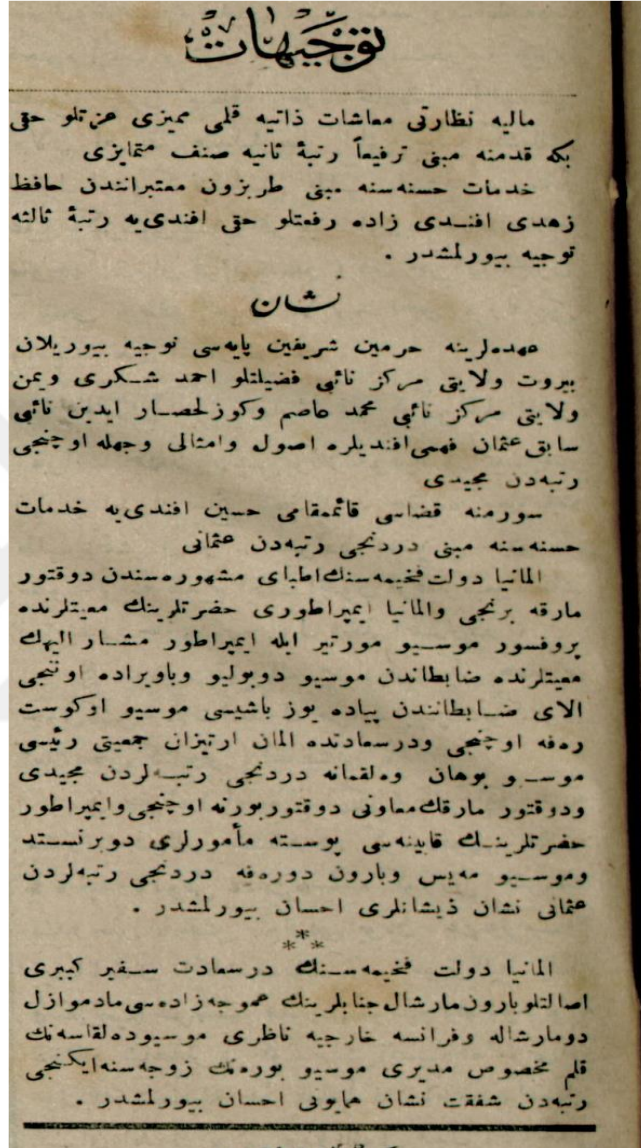 توجیهات
مالیه نظارتی معاشات ذاتیه قلمی ممیزی عزتلو حقی
بكه قدمنه مبنی ترفیعاً رتبهٔ ثانیه صنف متمایزی
خدمات حسنه‌سنه مبنی طربزون معتبرانندن حافظ
زهدی افنـدی زاده رفعتلو حقی افندی‌یه رتبهٔ ثالثه
توجیه بیورلمشدر .
نشان
عهده‌لرینه حرمین شریفین پایه‌سی توجیه بیوریلان
بیروت ولایتی مركز نائبی فضیلتلو احمد شـكری ویمن
ولایتی مركز نائبی محمد عاصم وكوزلحصـار ایدین نائبی
سابق عثمان فهمی افندیلره اصول وامثالی وجهله اوچنجی
رتبه‌دن مجیدی
سورمنه قضاسی قائممقامی حسین افندی‌یه خدمات
حسنه‌سنه مبنی دردنجی رتبه‌دن عثمانی
المانیا دولت فخیمه‌سنك اطبای مشهوره‌سندن دوقتور
مارقه برنجی والمانیا ایمپراطوری حضرتلرینك معیتلرنده
پروفسور موسـیو مورتیر ایله ایمپراطور مشـار الیهك
معیتلرنده ضابطاندن موسیو دوبولیو وباویراده اوننجی
الای ضـابطانندن پیاده یوز باشیسی موسیو اوكوست
ره‌فه اوچنجی ودرسعادتده المان ارتیزان جمعیتی رئیسی
موسـیو بوهان وه‌لقمانه دردنجی رتبـه‌لردن مجیدی
ودوقتور مارقك معاونی دوقتور بورنه اوچنجی وایمپراطور
حضرتلرینـك قابینه‌سی پوسـته مأمورلری دوبرنسـتد
وموسـیو مه‌یس وبارون دوره‌فه دردنجی رتبه‌لردن
عثمانی نشان ذیشانلری احسان بیورلمشدر .
***
المانیا دولت فخیمه‌سـنك درسعادت سـفیر كبیری
اصالتلو بارون مارشال جنابلرینك عموجه‌زاده‌سی مادموازل
دومارشاله وفرانسه خارجیه ناظری موسیو ده‌لقاسه‌نك
قلم مخصوص مدیری موسیو بوره‌نك زوجه‌سنه ایكنجی
رتبه‌دن شفقت نشان همایونی احسان بیورلمشدر .